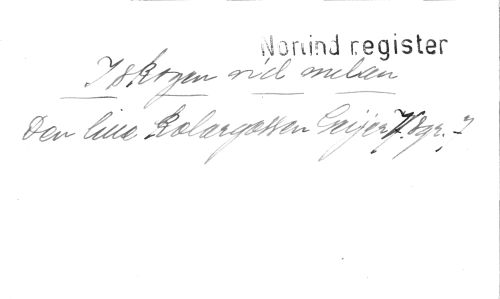 Norlind register
I skogen vid milan
Den lilla Kolargossen Geijer, I. sgr. I